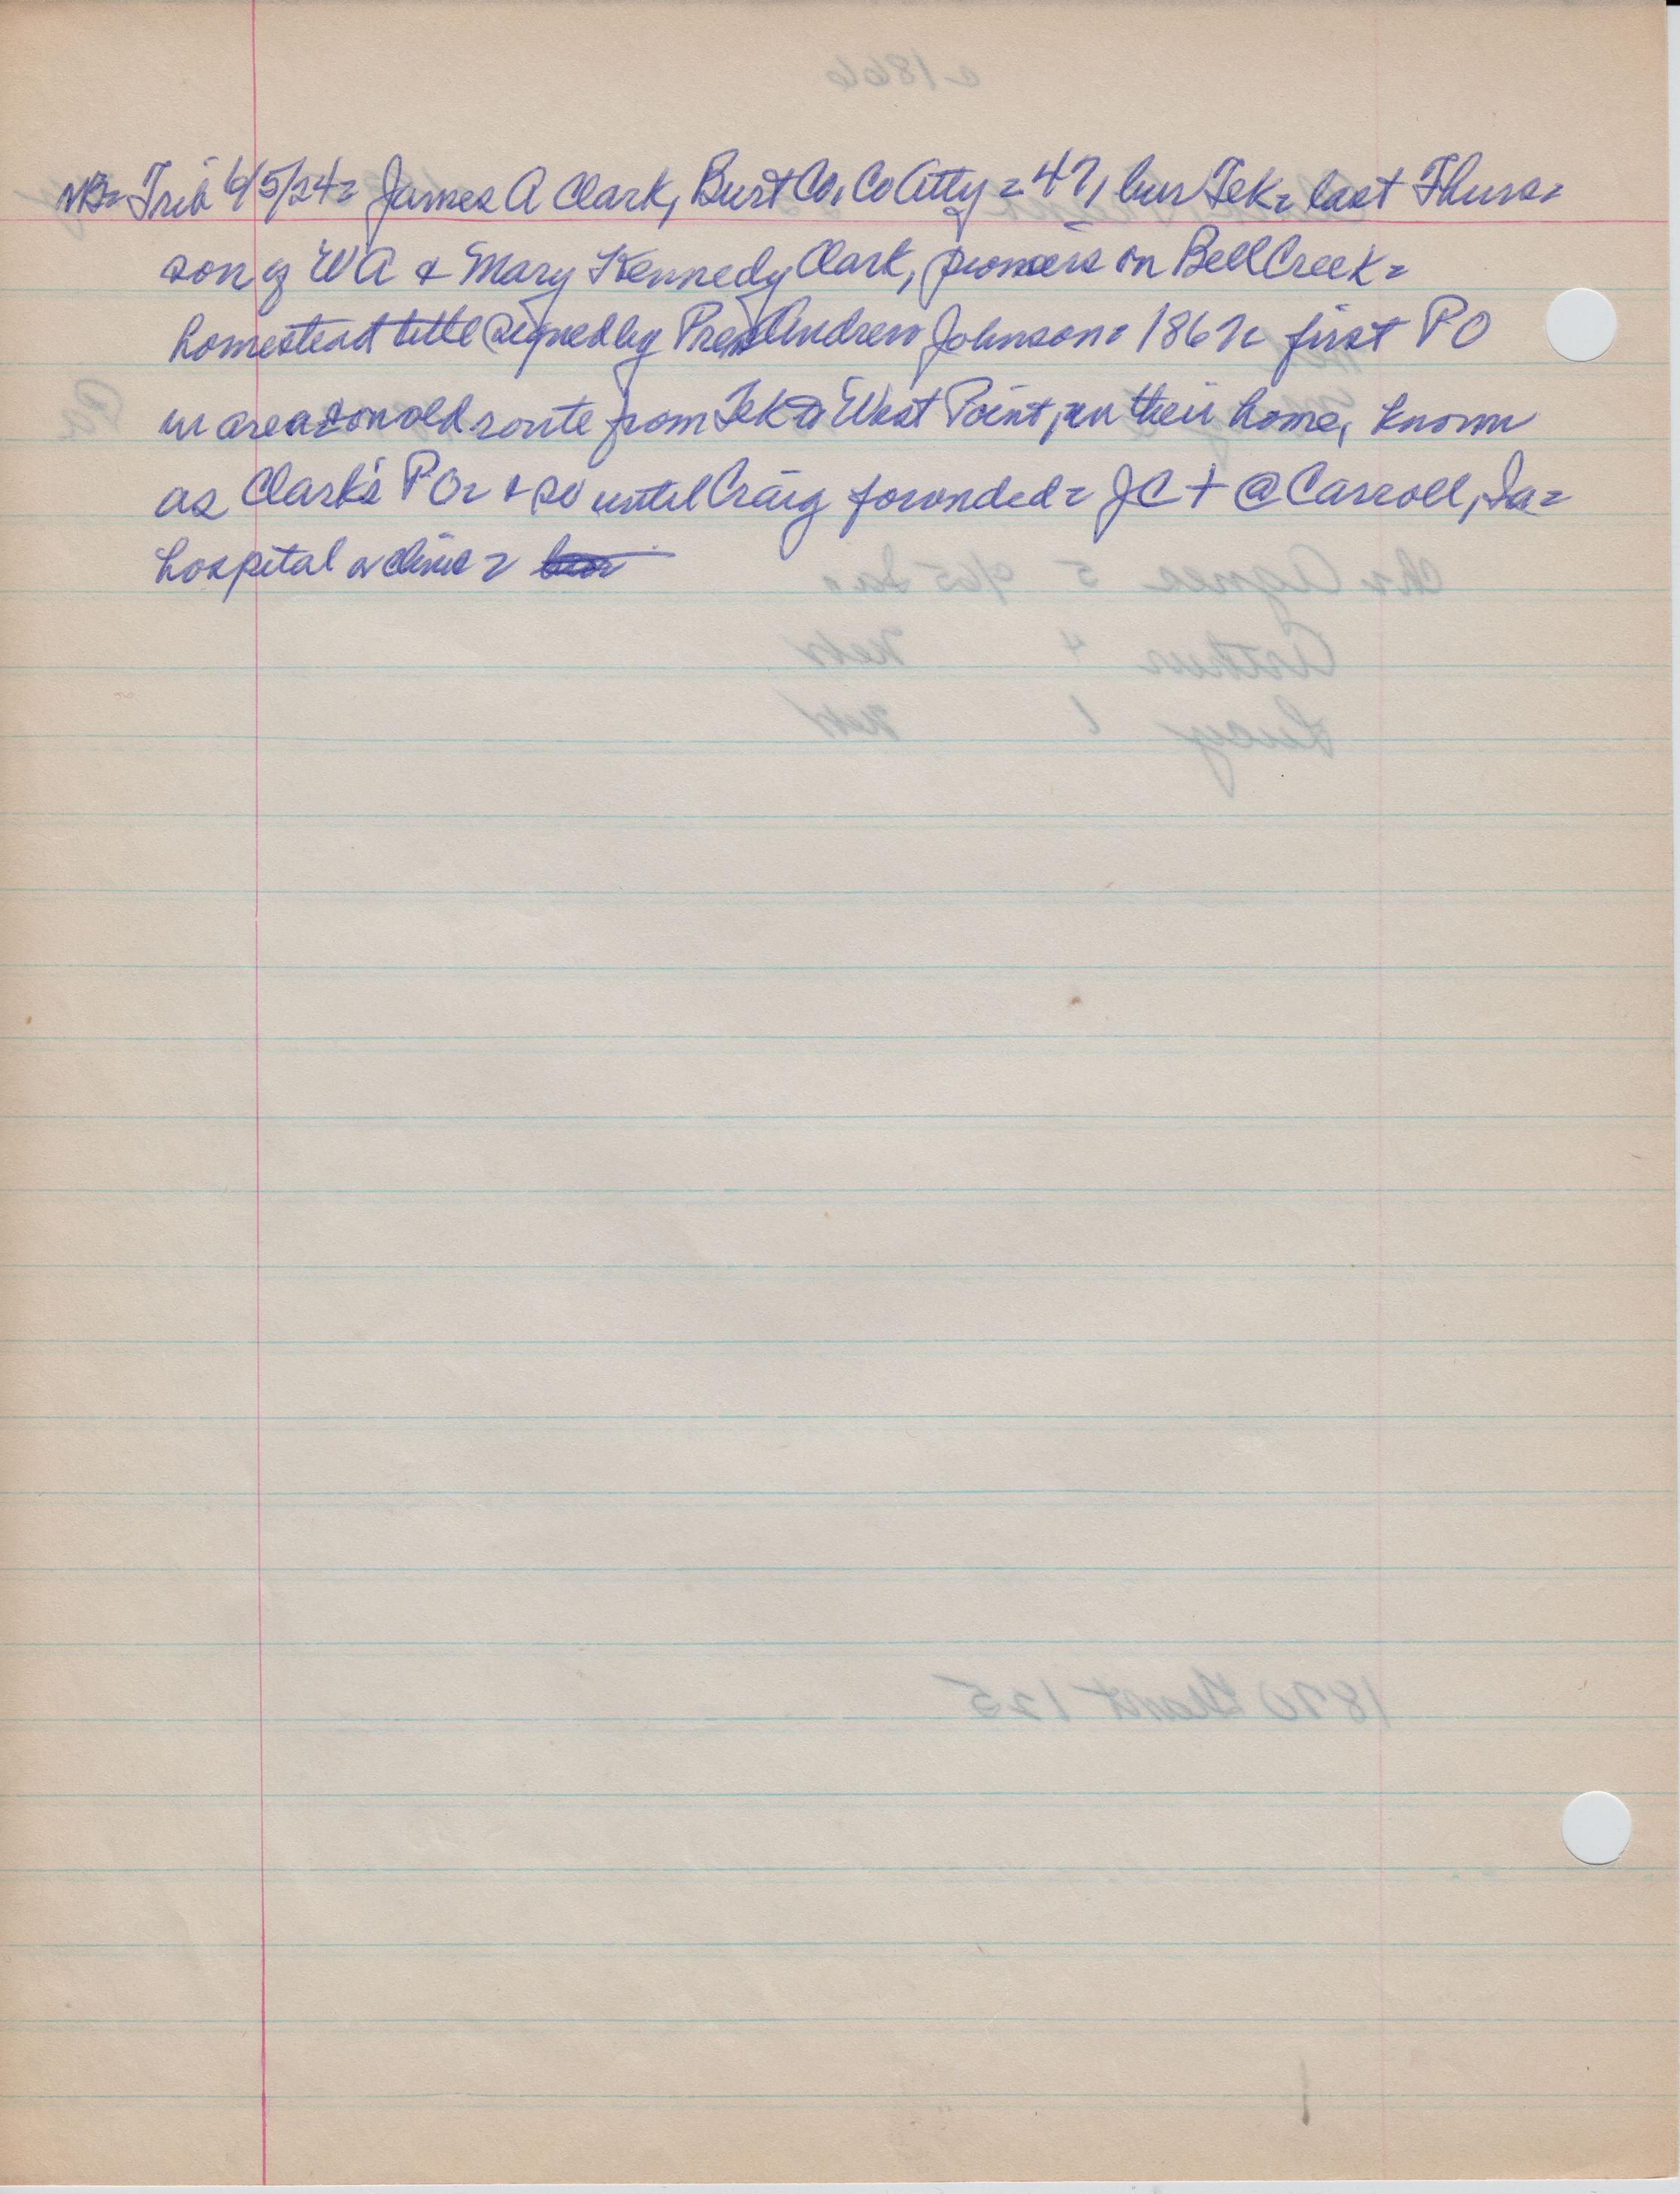 NB= Trib 6/5/24= James A Clark, Burt Co, Co Atty = 47, bur Tek= last Thurs=
son of WA & Mary Kennedy Clark, pioneers on Bell Creek=
homestead title signed by Pres Andrew Johnson= 1867= first PO
in area= on old route from Tek to West Point, in their home, known
as Clark's PO= & so until Craig founded= JC + @ Carroll, Ia=
hospital or clinic =